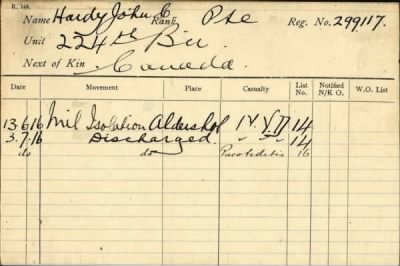 R. 148.
Name Hardy John C Rank Pte Reg. No. 299117.
Unit 224th Bn
Next of Kin Canada.
Date Movement Place Casualty List No. Notified N/K O. W.O. List
13.6.16 Mil Isolation Aldershot 14
3.7.16 Discharged. " " " 14
do do Parotiditis 16